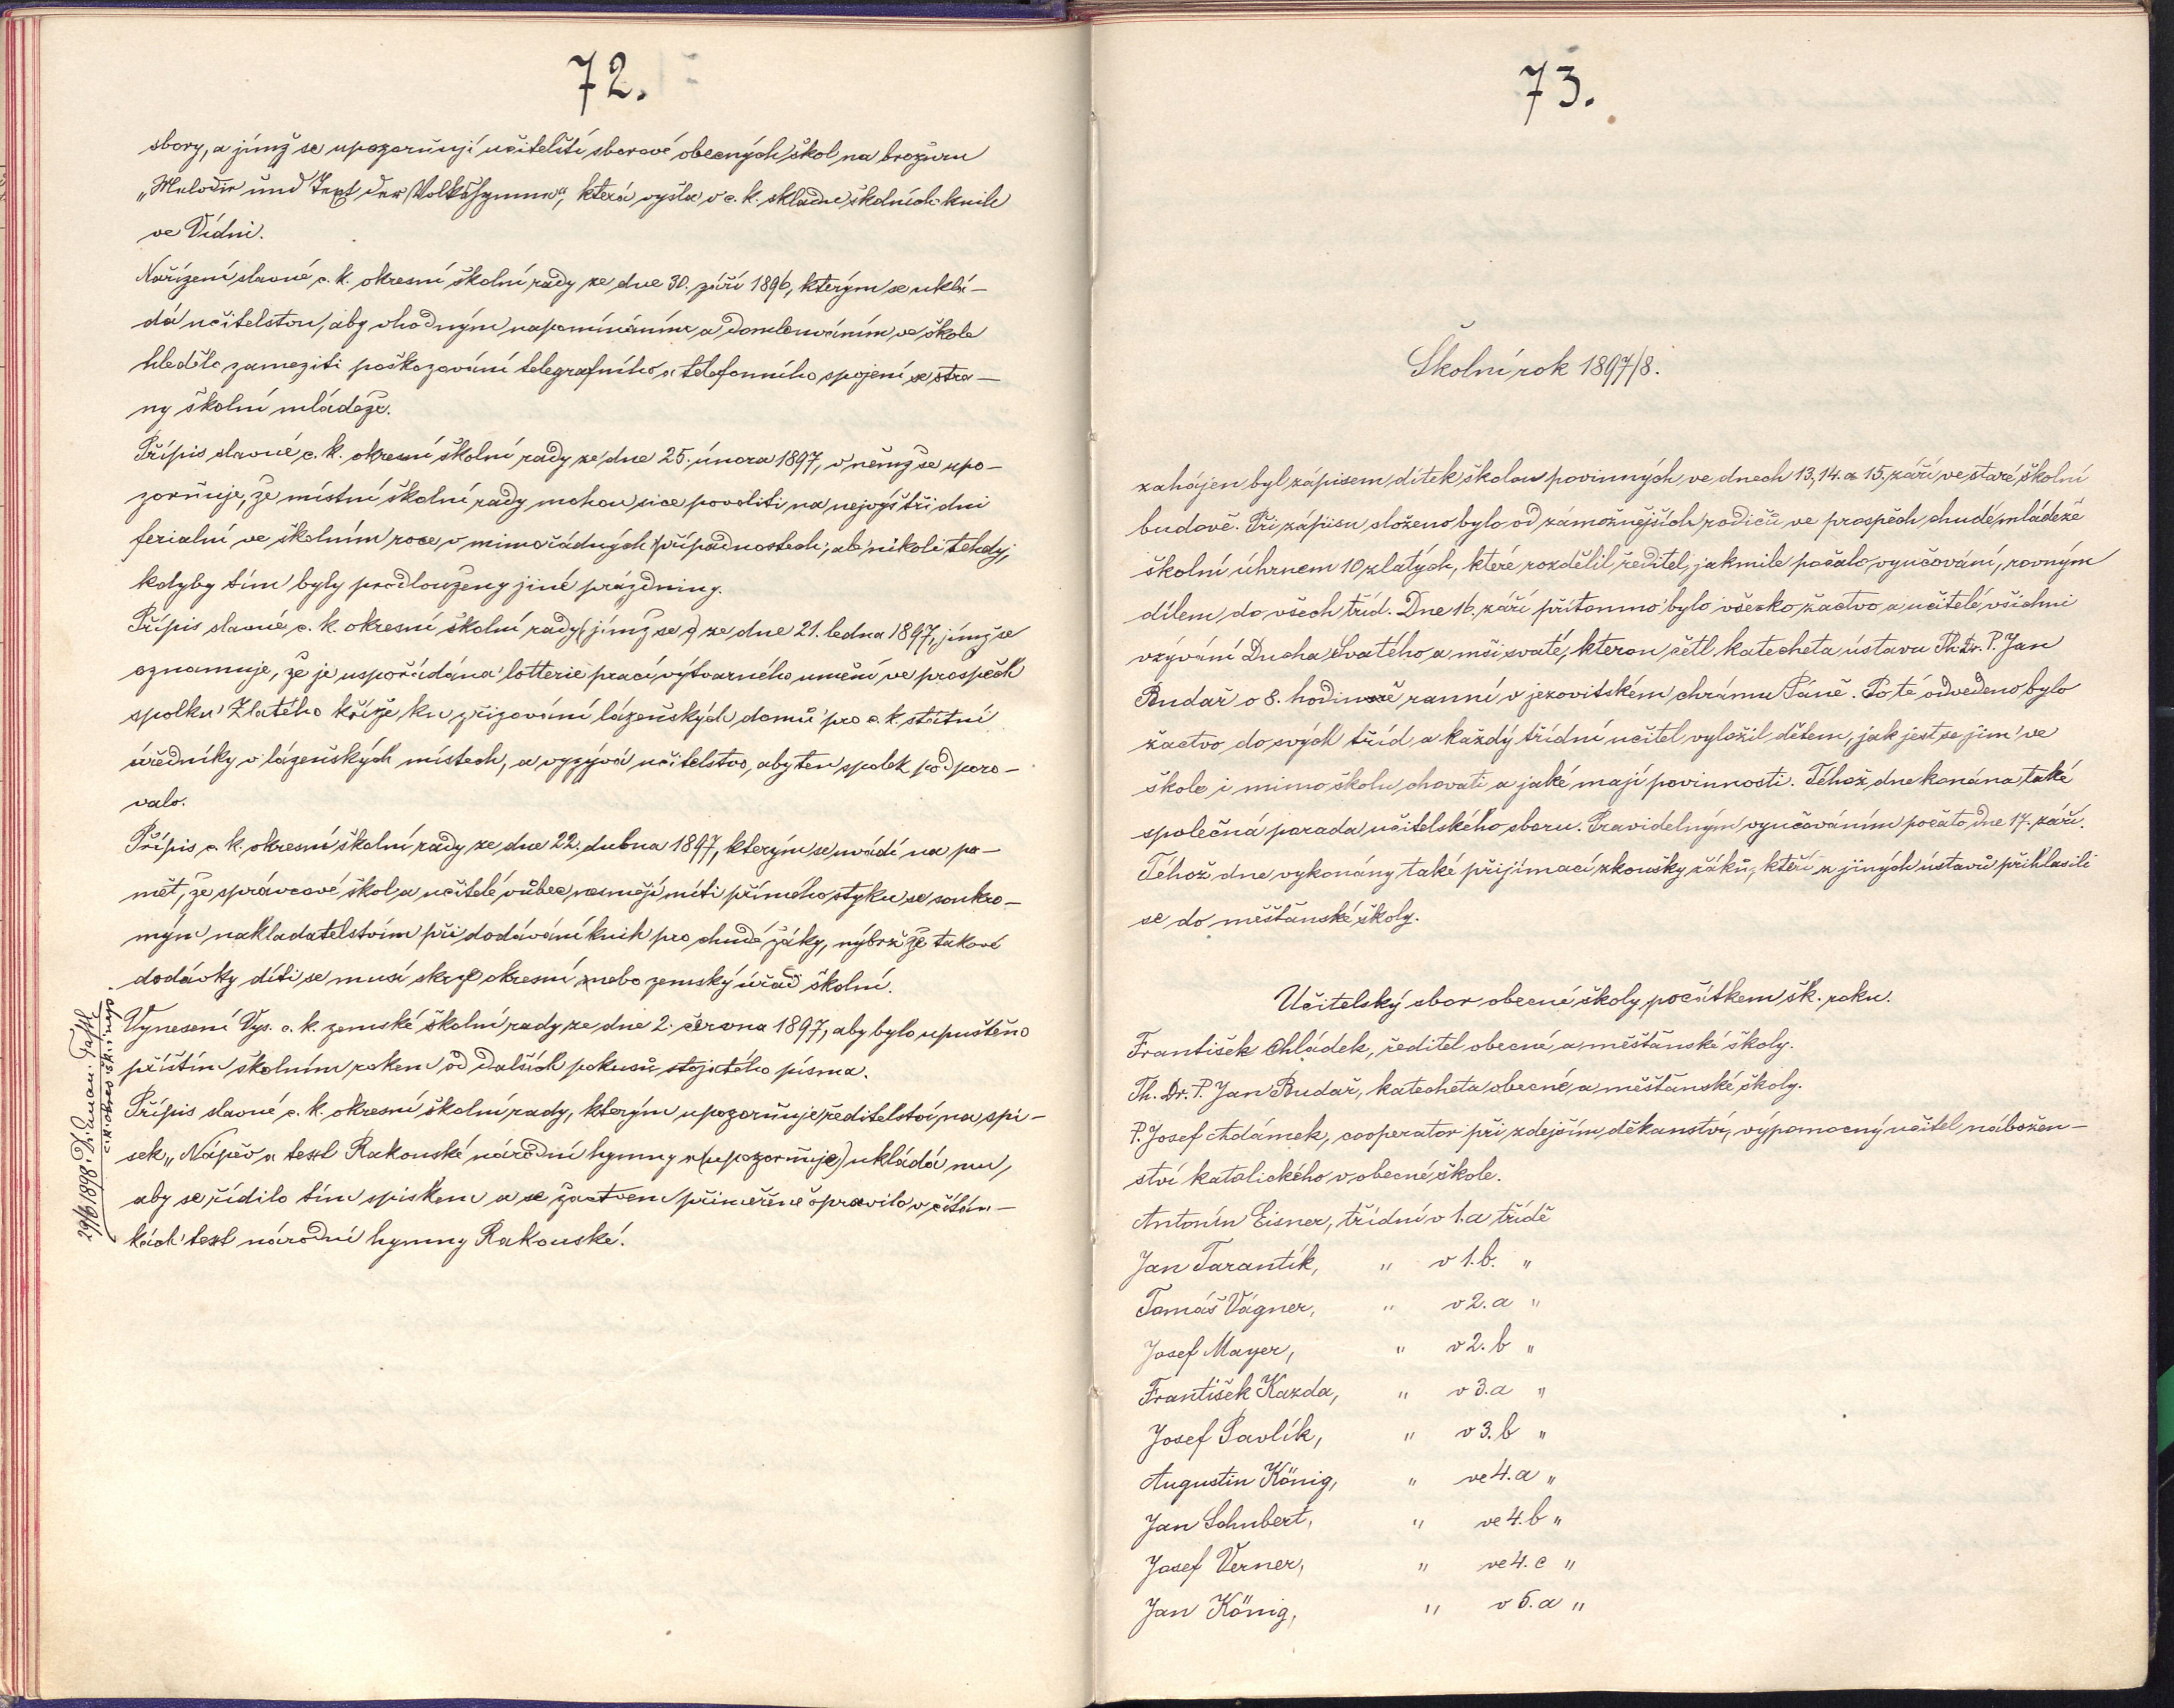 72.
sbory, a jímž se upozorňují učitelští sborové obecných škol na brožuru
„Melodie und Text der Volkshymne", která vyšla v c. k. skladu školních knih
ve Vídni.
Nařízení slavné c. k. okresní školní rady ze dne 30. září 1896, kterým se uklá-
dá učitelstvu, aby vhodným napomínáním a domlouváním ve škole
hledělo zameziti poškozování telegrafního a telefonního spojení se stra-
ny školní mládeže.
Přípis slavné c. k. okresní školní rady ze dne 25. února 1897, v němž se upo-
zorňuje, že místní školní rady mohou sice povoliti na nejvýš tři dni
ferialní ve školním roce v mimořádných případnostech, ale nikoli tehdy,
kdyby tím byly prodlouženy jiné prázdniny.
Přípis slavné c. k. okresní školní rady (jímž se o) ze dne 21. ledna 1897, jímž se
oznamuje, že je uspořádána lotterie prací výtvarného umění ve prospěch
spolku Zlatého kříže ku zřizování lázeňských domů pro c. k. státní
úředníky v lázeňských místech, a vyzývá učitelstvo, aby ten spolek podporo-
valo.
Přípis c. k. okresní školní rady ze dne 22. dubna 1897, kterým se uvádí na pa-
mět, že správcové škol a učitelé vůbec nesmějí míti přímého styku se soukro-
mým nakladatelstvím při dodávání knih pro chudé žáky, nýbrž že takové
dodávky díti se musí skrze okresní nebo zemský úřad školní.
Vynesení Vys. c. k. zemské školní rady ze dne 2. června 1897, aby bylo upuštěno
příštím školním rokem od dalších pokusů stojatého písma.
Přípis slavné c. k. okresní školní rady, kterým upozorňuje ředitelství na spi-
sek „Nápěv a text Rakouské národní hymny a (upozorňuje) ukládá mu,
aby se řídilo tím spiskem a se žactvem přiměřeně opravilo v čítán-
kách text národní hymny Rakouské.
29/6 1898.
73.
Školní rok 1897/8.
zahájen byl zápisem dítek školou povinných ve dnech 13, 14. a 15. září ve staré školní
budově. Při zápisu složeno bylo od zámožnějších rodičů ve prospěch chudé mládeže
školní úhrnem 10 zlatých, které rozdělil ředitel, jakmile počalo vyučování, rovným
dílem do všech tříd. Dne 16. září přítomno bylo všecko žactvo a učitelé všichni
vzývání Ducha Svatého a mši svaté, kterou četl katecheta ústavu Th. Dr. P. Jan
Budař o 8. hodině ranní v jezovitském chrámu Páně. Po té odvedeno bylo
žactvo do svých tříd a každý třídní učitel vyložil dětem, jak jest se jim ve
škole i mimo školu chovati a jaké mají povinnosti. Téhož dne konána také
společná porada učitelského sboru. Pravidelným vyučováním počato dne 17. září.
Téhož dne vykonány také přijímací zkoušky žáků, kteří z jiných ústavů přihlásili
se do měšťanské školy.
Učitelský sbor obecné školy počátkem šk. roku.
František Chládek, ředitel obecné a měšťanské školy.
Th. Dr. P. Jan Budař, katecheta obecné a měšťanské školy.
P. Josef Adámek, cooperator při zdejším děkanství, výpomocný učitel nábožen-
ství katolického v obecné škole.
Antonín Eisner, třídní v 1.a třídě
Jan Tarantík, " v 1.b. "
Tomáš Vágner, " v 2.a "
Josef Mayer, " v 2.b "
František Kazda, " v 3.a "
Josef Pavlík, " v 3.b "
Augustin König, " ve 4.a "
Jan Schubert, " ve 4.b "
Josef Verner, " ve 4.c "
Jan König, " v 5.a "